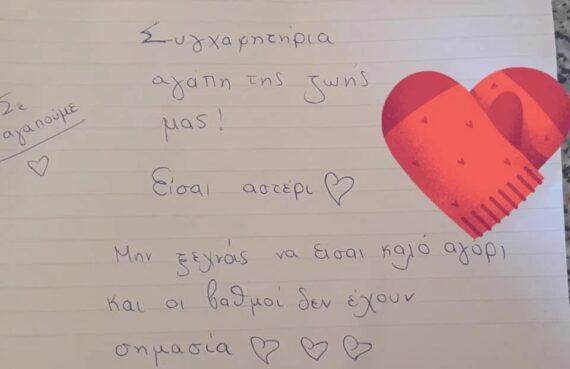 Συγχαρητήρια
αγαπη της ζωής
μας!
Σε
αγαπούμε
Είσαι αστέρι
Μην ξεχνάς να εισαι καλό αγόρι
και οι βαθμοί δεν έχουν
σημασία